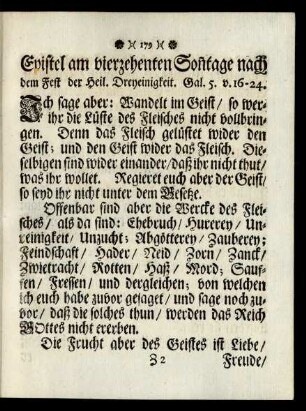 179
Epistel am vierzehenten Soñtage nach
dem Fest der Heil. Dreyeinigkeit. Gal. 5. v. 16-24.
Ich sage aber: Wandelt im Geist/ so wer-
ihr die Lüste des Fleisches nicht vollbrin-
gen. Denn das Fleisch gelüstet wider den
Geist; und den Geist wider das Fleisch. Die-
selbigen sind wider einander/ daß ihr nicht thut/
was ihr wollet. Regieret euch aber der Geist/
so seyd ihr nicht unter dem Gesetze.
Offenbar sind aber die Wercke des Flei-
sches/ als da sind: Ehebruch/ Hurerey/ Un-
reinigkeit/ Unzucht; Abgötterey/ Zauberey;
Feindschaft/ Hader/ Neid/ Zorn/ Zanck/
Zwietracht/ Rotten/ Haß/ Mord; Sauf-
fen/ Fressen/ und dergleichen; von welchen
ich euch habe zuvor gesaget/ und sage noch zu-
vor/ daß die solches thun/ werden das Reich
GOttes nicht ererben.
Die Frucht aber des Geistes ist Liebe/
Z 2 Freude/